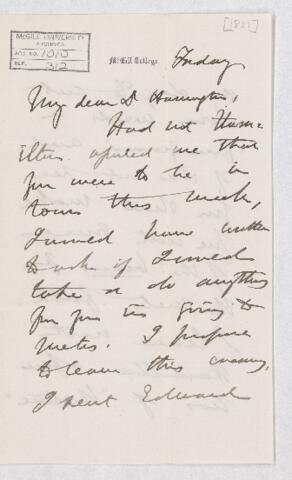 [1881]
McGILL UNIVERSITY
ARCHIVES
ACC. NO. 1015
REF. 3/2
McGill College
Friday
My dear Dr Harrington,
Had not Ham-
ilton me that
you were to be in
town this week,
I would have written
to ask if I could
take or do anything
for you in going to
Metis. I propose
to leave this evening.
I sent Edward